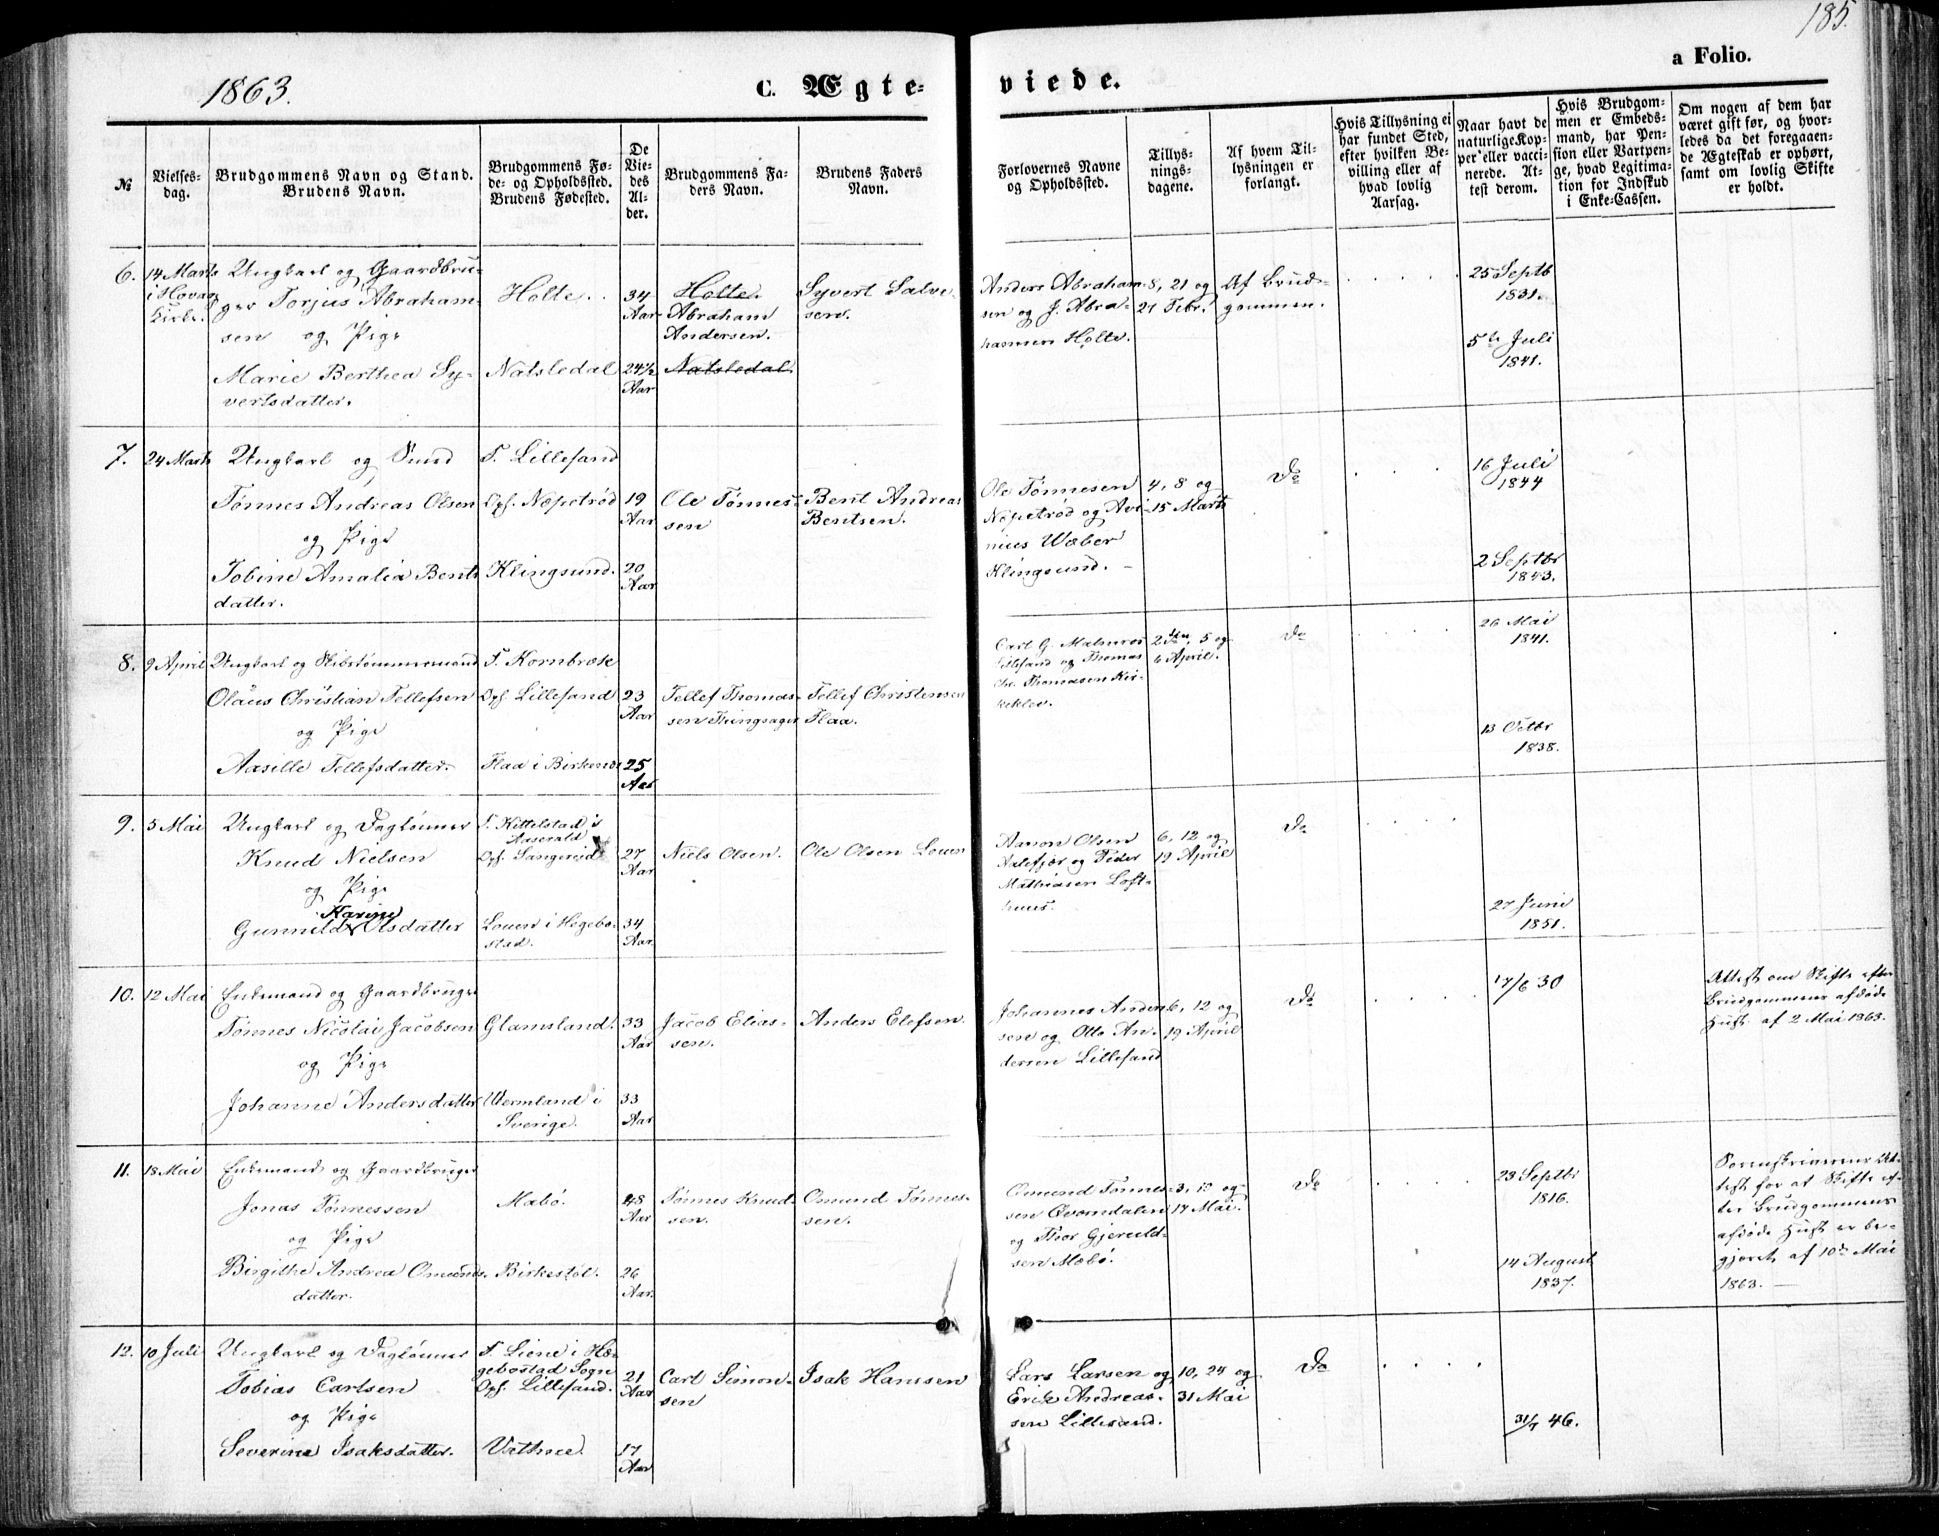 1863.
C. Ægte-
viede.
a Folio.
185.
№
Vielses-
dag.
Brudgommens Navn og Stand.
Brudens Navn.
Brudgommens Fø-
de- og Opholdssted.
Brudens Fødested.
De
Vie-
des
Al-
der.
Brudgommens Fa-
ders Navn.
Brudens Faders
Navn.
Forlovernes Navne
og Opholdssted.
Tillys-
nings-
dagene.
Af hvem Til-
lysningen er
forlangt.
Hvis Tillysning ei
har fundet Sted,
efter hvilken Be-
villing eller af
hvad lovlig
Aarsag.
Naar havt de
naturlige Kop-
per eller vacci-
nerede. At-
test derom.
Hvis Brudgom-
men er Embeds-
mand, har Pen-
sion eller Vartpen-
ge, hvad Legitima-
tion for Indskud
i Enke-Cassen.
Om nogen af dem har
været gift før, og hvor-
ledes da det foregaaen-
de Ægteskab er ophørt,
samt om lovlig Skifte
er holdt.
6.
14 Marts
i Høvaag
Kirke.
Ungkarl og Gaardbru-
ger Torjus Abraham-
sen og Pige
Marie Berthea Sy-
vertsdatter.
Holte.
Natsledal
34
Aar
24½
Aar
Holte.
Abraham
Andersen.
Natsledal.
Syvert Salve-
sen.
Anders Abraham-
sen og J. Abra-
hamsen Holte.
8, 21 og
21 Febr.
Af Brud-
gommen.
25 Septb
1831.
5te Juli
1841.
7.
24 Marts
Ungkarl og Smed
Tønnes Andreas Olsen
og Pige
Tobine Amalia Bents
datter.
F. Lillesand
Oph. Nøpetrød
Klingsund.
19
Aar
20
Aar
Ole Tønnes-
sen
Bent Andreas
Bentsen.
Ole Tønnesen
Nøpetrød og Avi-
nius Wæber
Klingsund.
4, 8 og
15 Marts
Do
16 Juli
1844
2 Septbr
1843.
8.
9 April
Ungkarl og Skibstømmermand
Olaus Christian Tellefsen
og Pige
Aasille Tellefsdatter.
F. Kornbræke
Oph. Lillesand
Flaa i Birkenes
23
Aar
25
Aar
Tellef Thomas-
sen Thingsager
Tellef Christensen
Flaa.
Carl G. Malmros
Lillesand og Thomas
Chr. Thomassen Kir-
keklev.
2den, 5 og
6 April.
Do
26 Mai
1841.
13 Octbr
1838.
9.
5 Mai
Ungkarl og Daglønner
Knud Nielsen
og Pige
Karine
Gunnild Olsdatter
F. Kittelstad i
Aaserald
Oph. Sangereid
Louen i Hegebo-
stad.
27
Aar
34
Aar
Niels Olsen.
Ole Olsen Louen
Aanon Olsen
Aalefjær og Peder
Mathiasen Loft-
huus.
6, 12 og
19 April
Do
27 Juni
1851.
10.
12 Mai
Enkemand og Gaardbruger
Tønnes Nicolai Jacobsen
og Pige
Johanne Andersdatter
Glamsland.
Wermland i
Sverige.
33
Aar
33
Aar
Jacob Elias-
sen.
Anders Elofsen.
Johannes Ander-
sen og Otto An-
dersen Lillesand
6, 12 og
19 April
Do
17/6 30
Attest om Skifte efter
Brudgommens afdøde
Hust. af 2 Mai 1863.
11.
18 Mai
Enkemand og Gaardbruger
Jonas Tønnessen
og Pige
Birgithe Andrea Omunds-
datter.
Mæbø.
Birkestøl.
48
Aar
26
Aar.
Tønnes Knud-
sen.
Omund Tønnes-
sen.
Omund Tønnes-
sen Qvarndalen
og Thor Gjeruld-
sen Mæbø.
3, 10 og
17 Mai.
Do
23 Septbr
1816.
14 August
1837.
Sorenskriverens At-
test for at Skifte ef-
ter Brudgommens
afdøde Hust. er be-
gjæret af 10de Mai
1863.
12.
10 Juli
Ungkarl og Daglønner
Tobias Carlsen
og Pige
Severine Isaksdatter.
F. Liene i Hæ-
gebostad Sogn
Oph. Lillesand.
Vathne.
21
Aar
17
Aar
Carl Simon-
sen
Isak Hansen
Lars Larsen og
Erik Andreas-
sen Lillesand.
10, 24 og
31 Mai
Do
31/7 46.